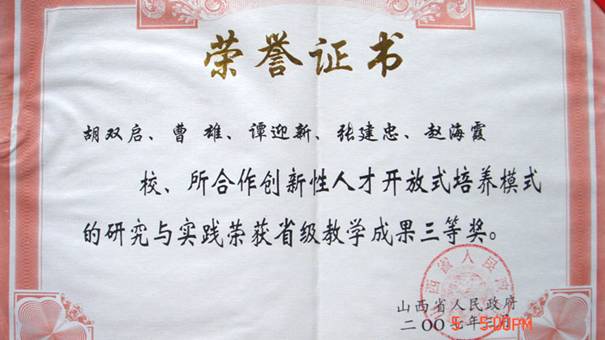 荣誉证书
胡双启、曹雄、谭迎新、张建忠、赵海霞
校、所合作创新性人才开放式培养模式
的研究与实践荣获省级教学成果三等奖。
山西省人民政府
山西省人民政府
二〇〇七年
5 5:00PM